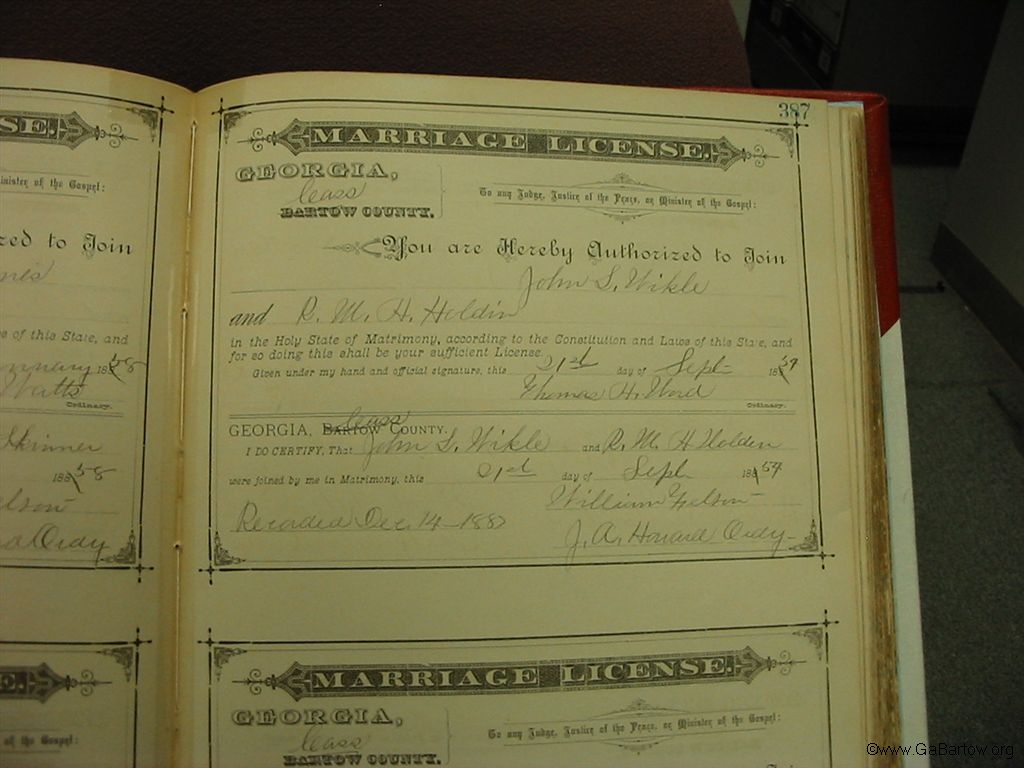 387
SE.
inister of the Gospel:
zed to Join
s of this State, and
188 58
Watts
Ordinary.
Skinner
188 58
elson
Ordy
E.
of the Gospel:
MARRIAGE LICENSE.
GEORGIA,
Cass
BARTOW COUNTY.
To any Judge, Justice of the Peace, or Minister of the Gospel:
You are Hereby Authorized to Join
John S. Wikle
and R. M. H. Holdin
in the Holy State of Matrimony, according to the Constitution and Laws of this State, and
for so doing this shall be your sufficient License.
Given under my hand and official signature, this 21st day of Sept 18
Thomas H. Word
Ordinary.
Cass
GEORGIA, BARTOW COUNTY.
I DO CERTIFY, That John S. Wikle and R. M. H Holden
were joined by me in Matrimony, this 21st day of Sept 18
William
Recorded Dec. 14 1887
J. A. Howard Ordy
MARRIAGE LICENSE.
GEORGIA,
Cass
BARTOW COUNTY.
To any Judge, Justice of the Peace, or Minister of the Gospel:
©www.GaBartow.org